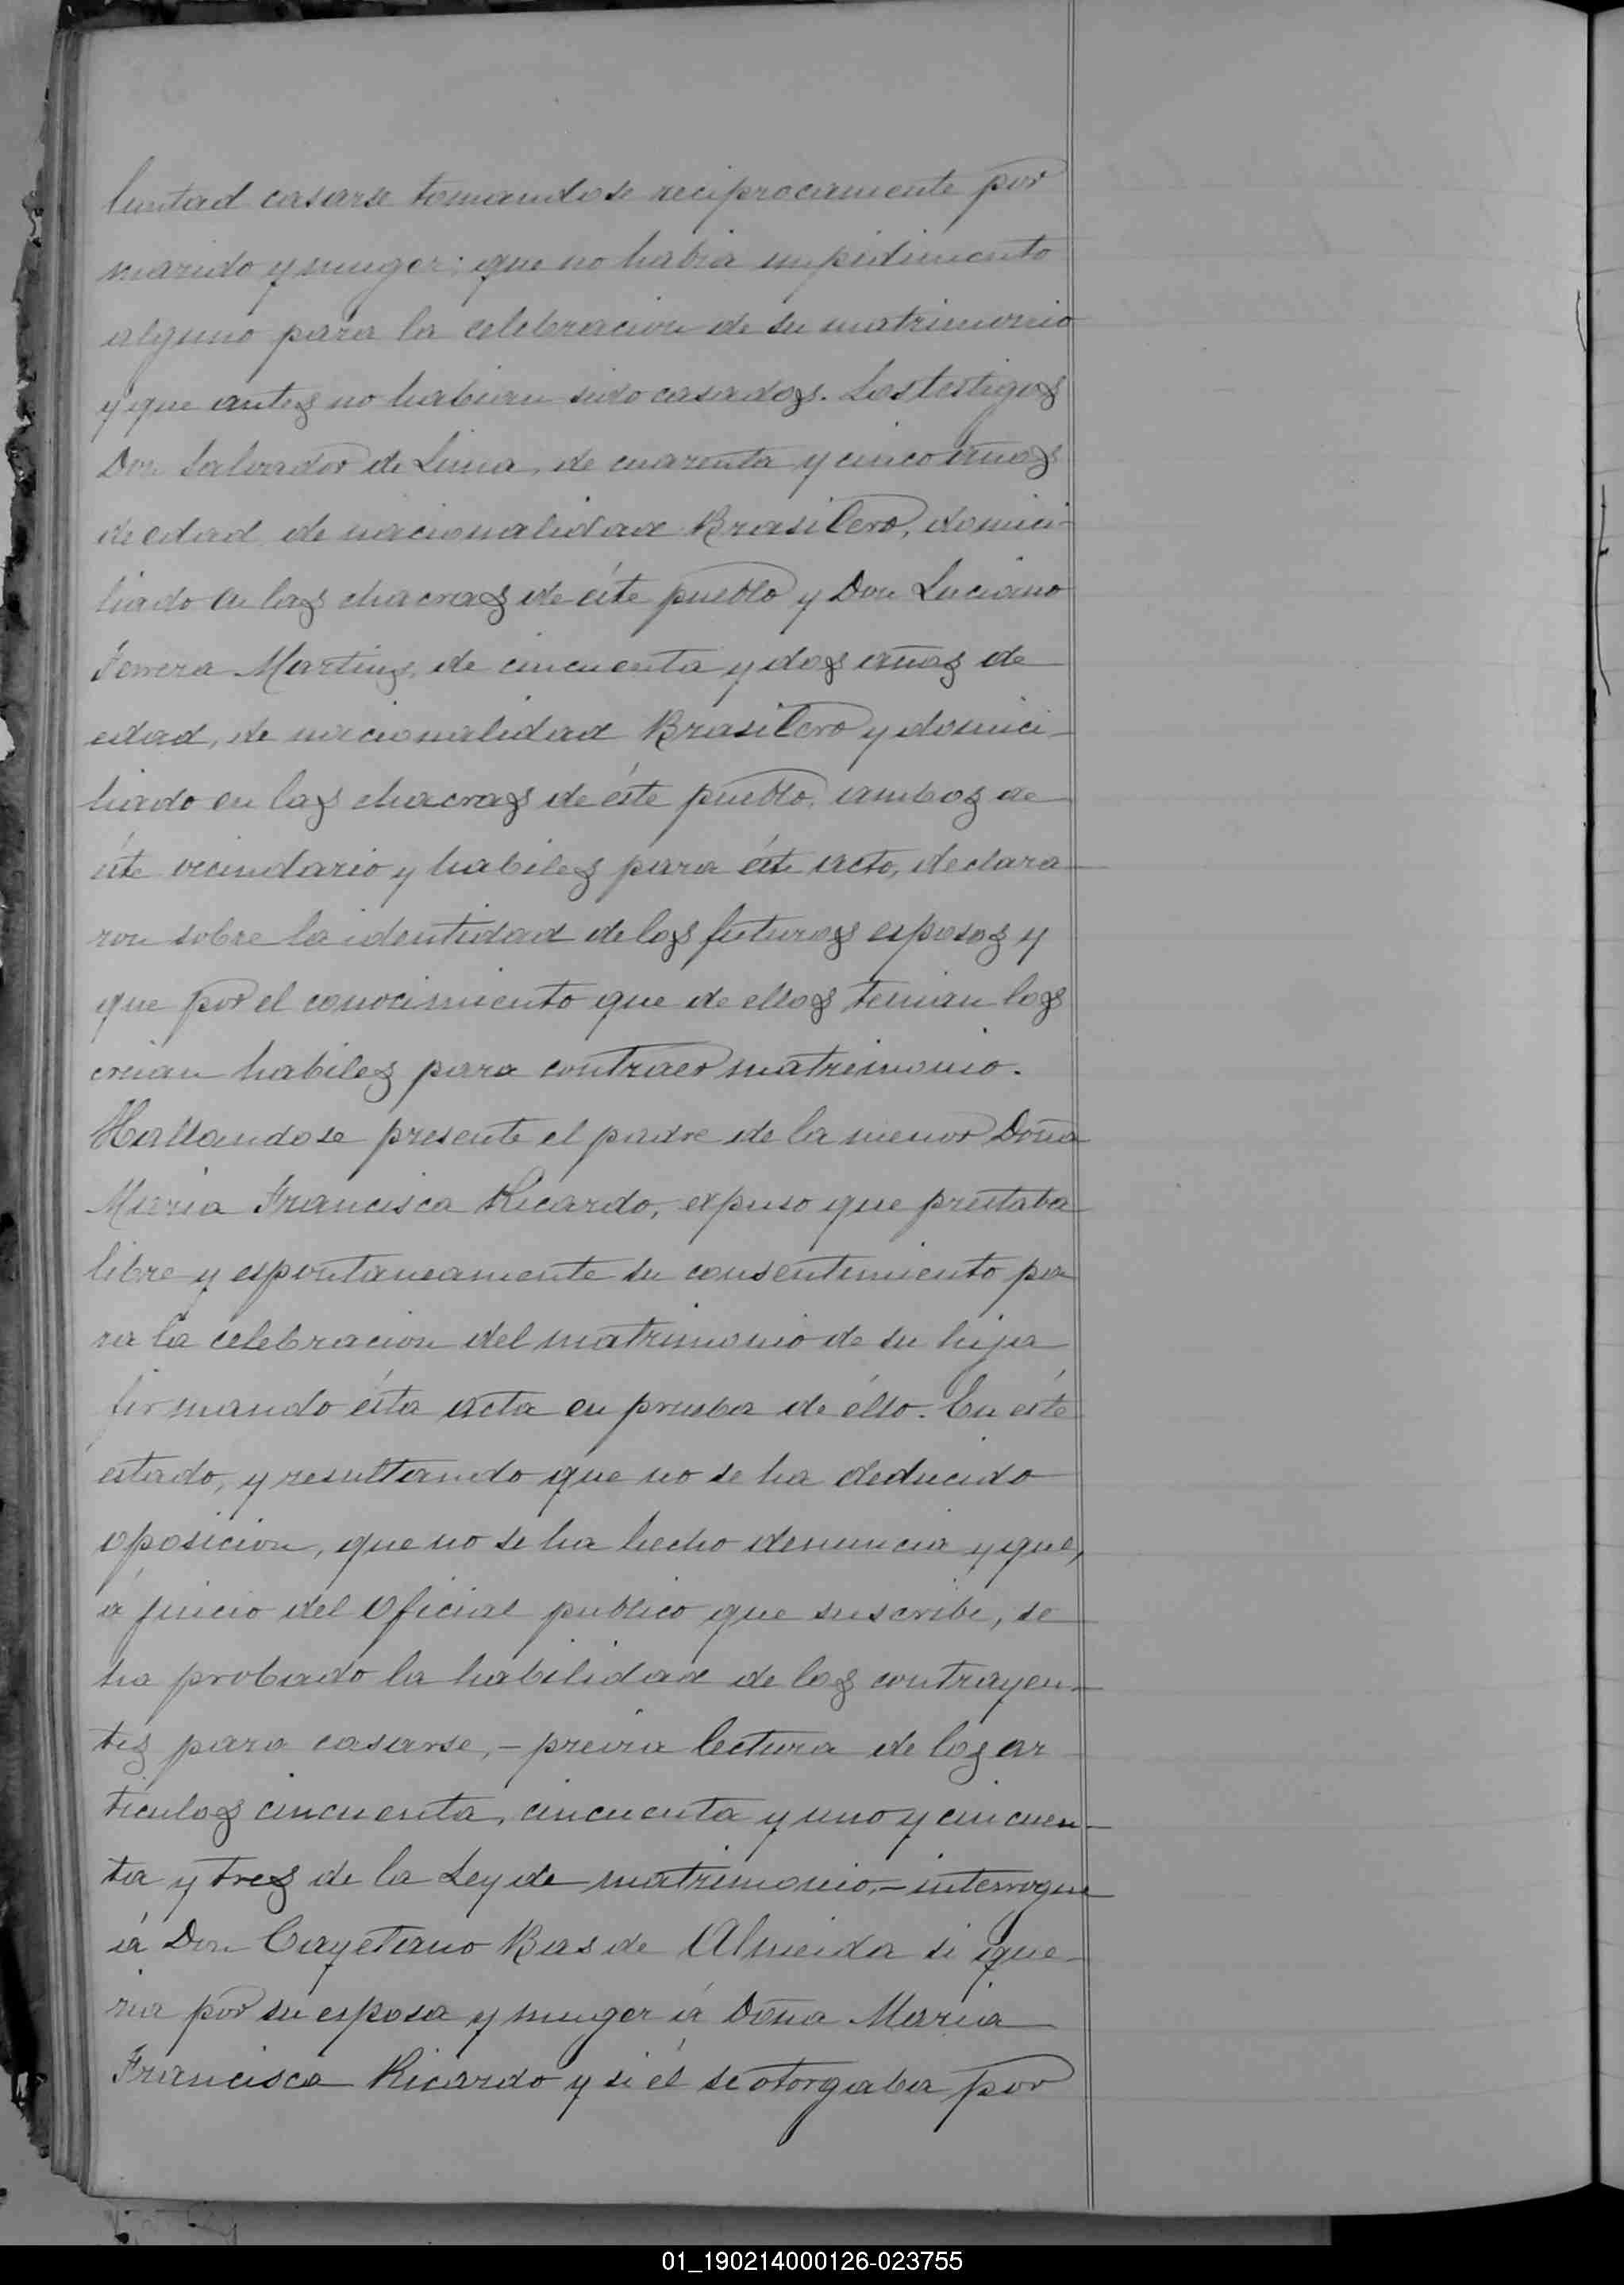 luntad casarse tomandose reciprocamente por
marido y muger; que no habia impedimento
alguno para la celebracion de su matrimonio
y que antes no habian sido casados. Los testigos
Don Salvador de Lima, de cuarenta y cinco años
de edad, de nacionalidad Brasilero, domici-
liado en las chacras de éste pueblo y Don Luciano
Ferrera Martins, de cincuenta y dos años de
edad, de nacionalidad Brasilero y domici-
liado en las chacras de éste pueblo, ambos de
éste vecindario y habiles para éste acto, declara-
ron sobre la identidad de los futuros esposos y
que por el conocimiento que de ellos tenian los
creian habiles para contraer matrimonio.
Hallandose presente el padre de la menor Doña
Maria Francisca Ricardo, expuso que prestaba
libre y espontaneamente su consentimiento pa
ra la celebracion del matrimonio de su hija
firmando ésta acta en prueba de éllo. En éste
estado, y resultando que no se ha deducido
oposicion, que no se ha hecho denuncia y que,
á juicio del Oficial publico que suscribe, se
ha probado la habilidad de los contrayen-
tes para casarse, - previa lectura de los ar
ticulos cincuenta, cincuenta y uno y cincuen-
ta y tres de la Ley de matrimonio, - interrogue
á Don Cayetano Bas de Almeida si que-
ria por su esposa y muger á Doña Maria
Francisca Ricardo y si él se otorgaba por
01_190214000126-023755